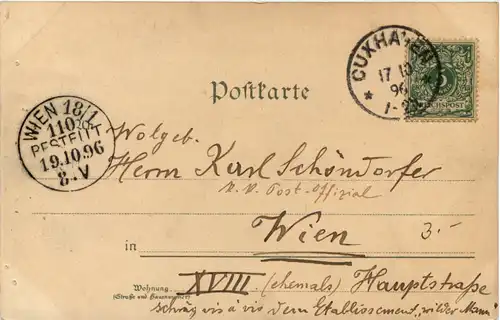 CUXHAVEN
17 10
96
* 7-8
5
REICHSPOST
Postkarte
WIEN 18/1
110
BESTELLT
19.10.96
8.V
Wolgeb.
Herrn Karl Schöndorfer
k. k. Post-Offizial
Wien
3.-
in
Wohnung
(Straße und Hausnummer)
XVIII (ehemals) Hauptstraße
schräg vis à vis dem Etablissement „wilder Mann"